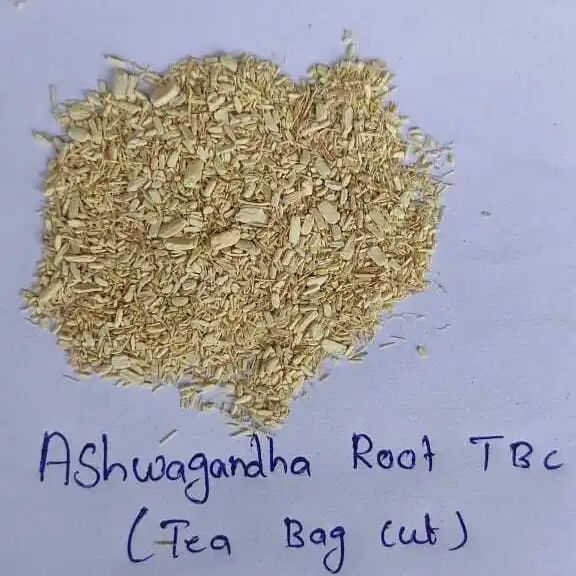 Ashwagandha Root TBC
(Tea Bag Cut)